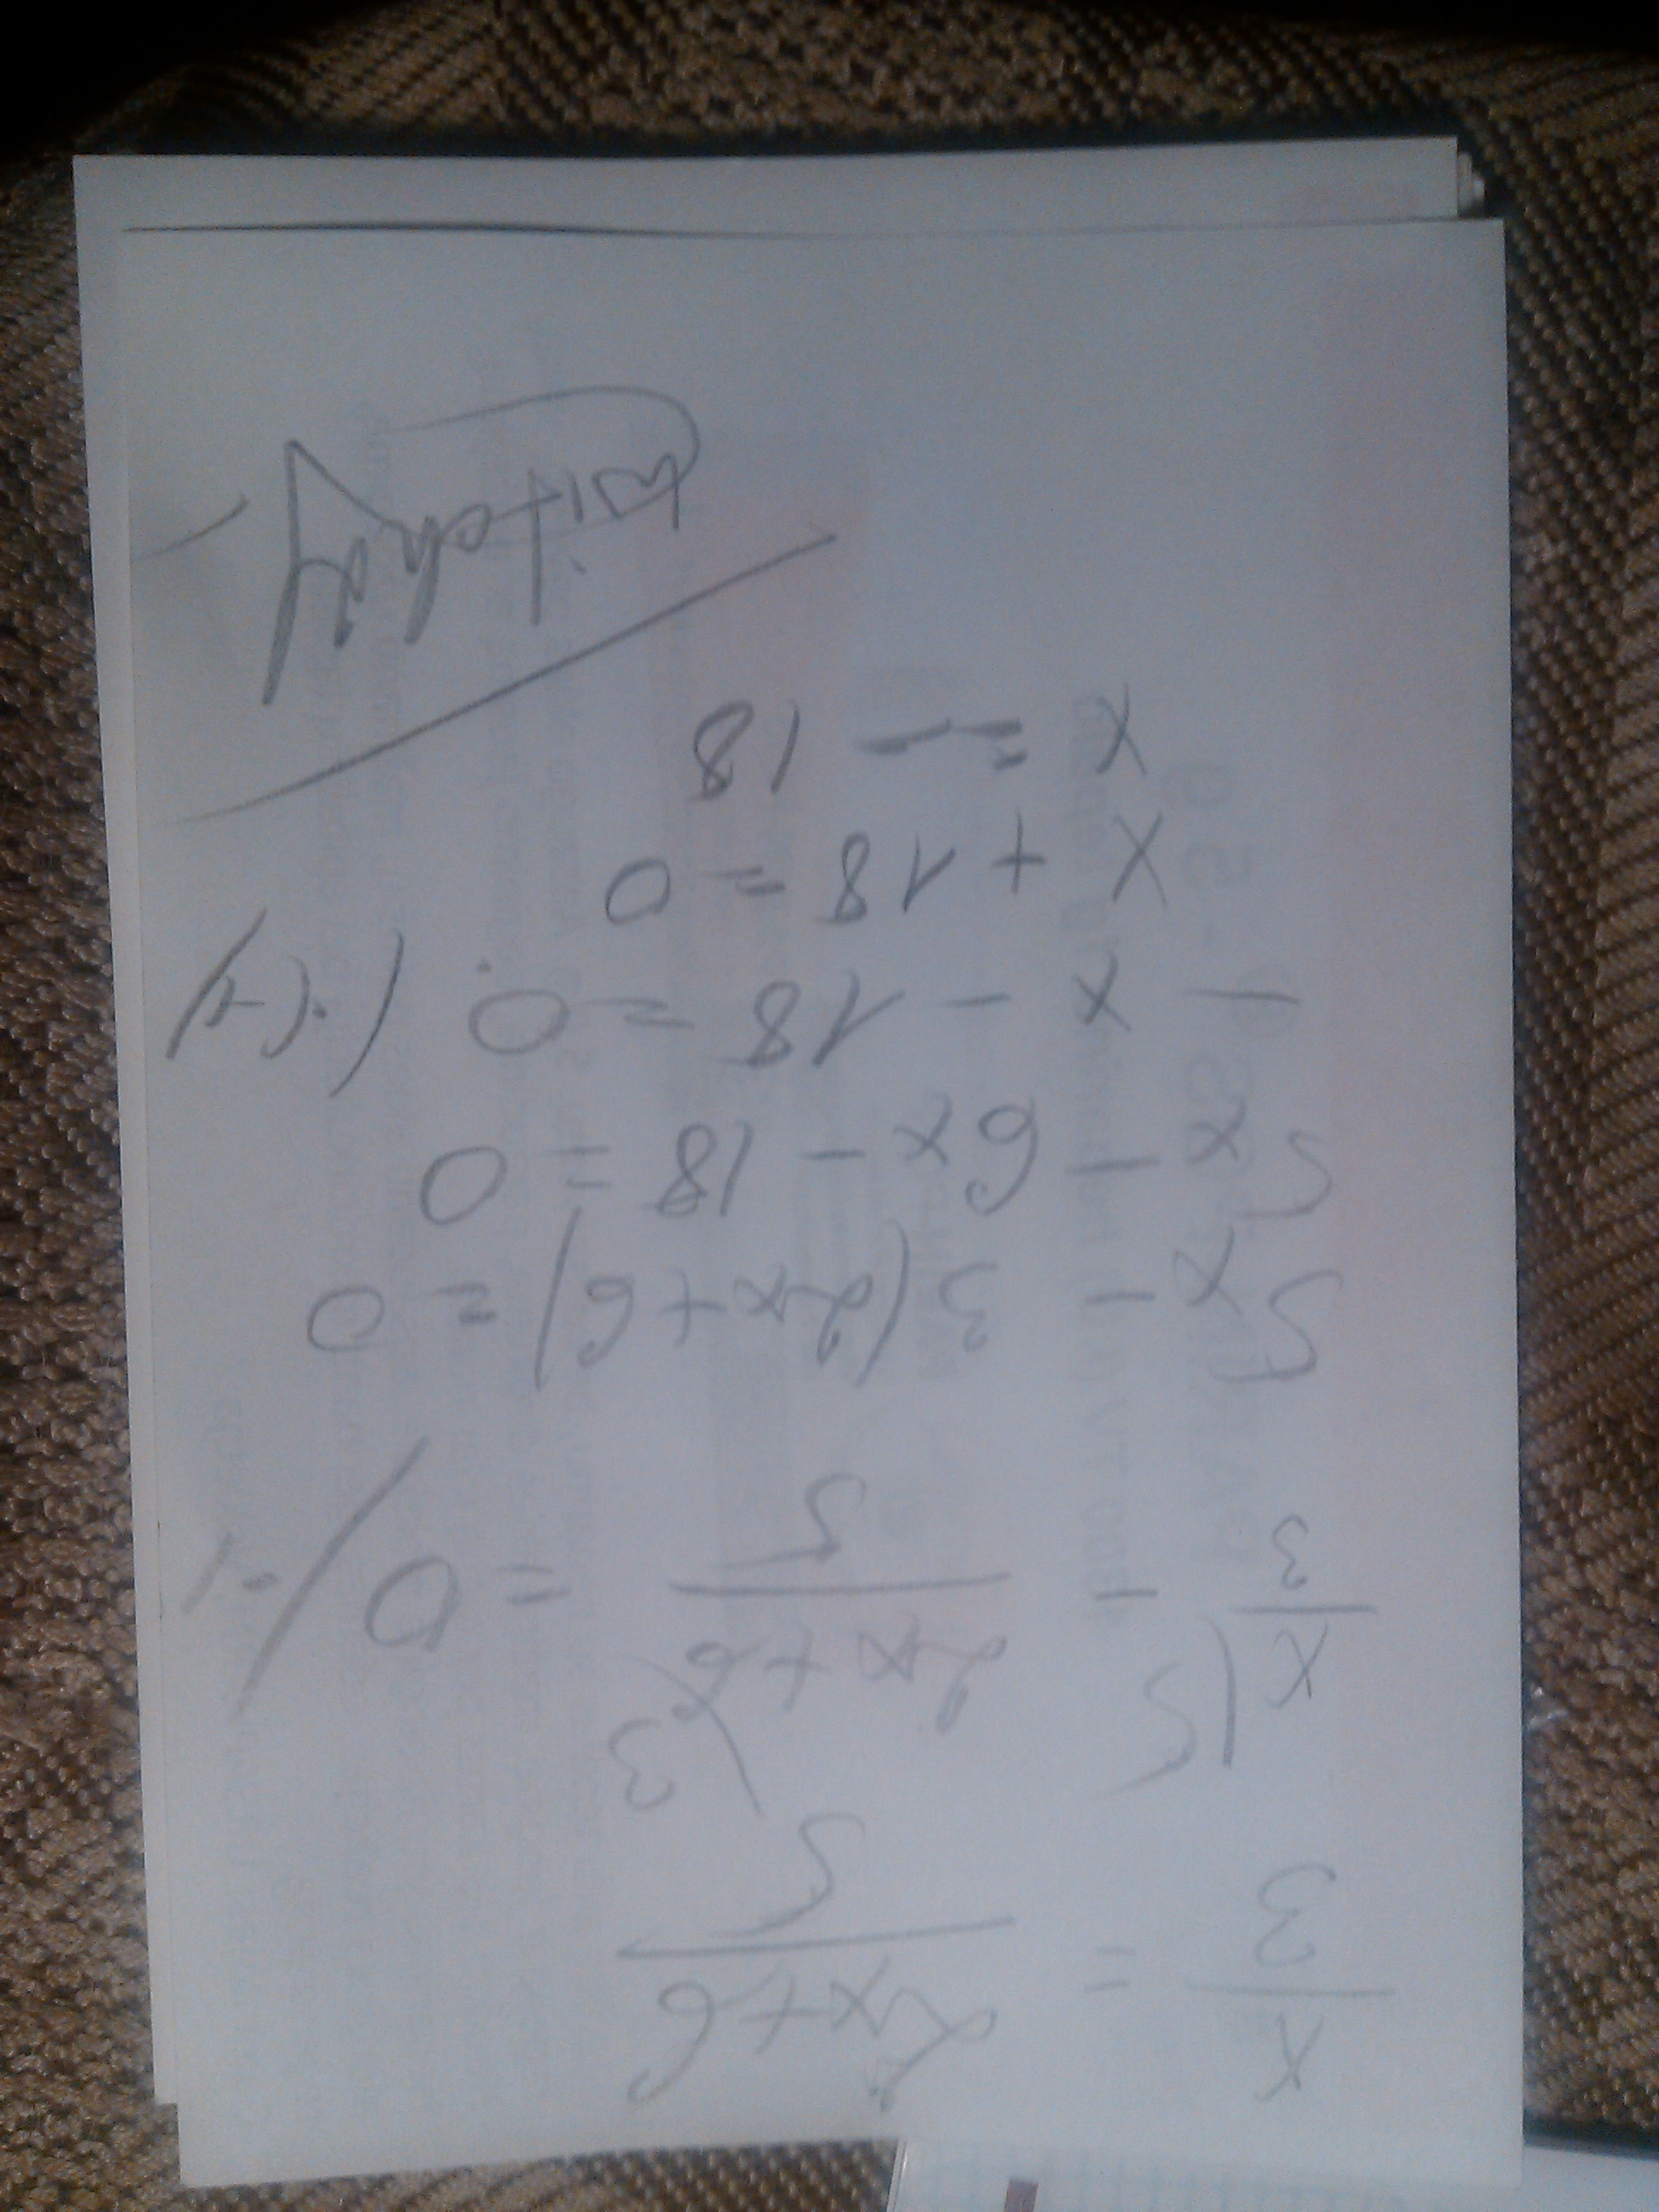 x/3 = 2x+6/5
x/3 (5 - 2x+6/5 (3 = 0/·1
5x - 3(2x+6) = 0
5x - 6x - 18 = 0
- x - 18 = 0 /·(-1)
x + 18 = 0
x = - 18